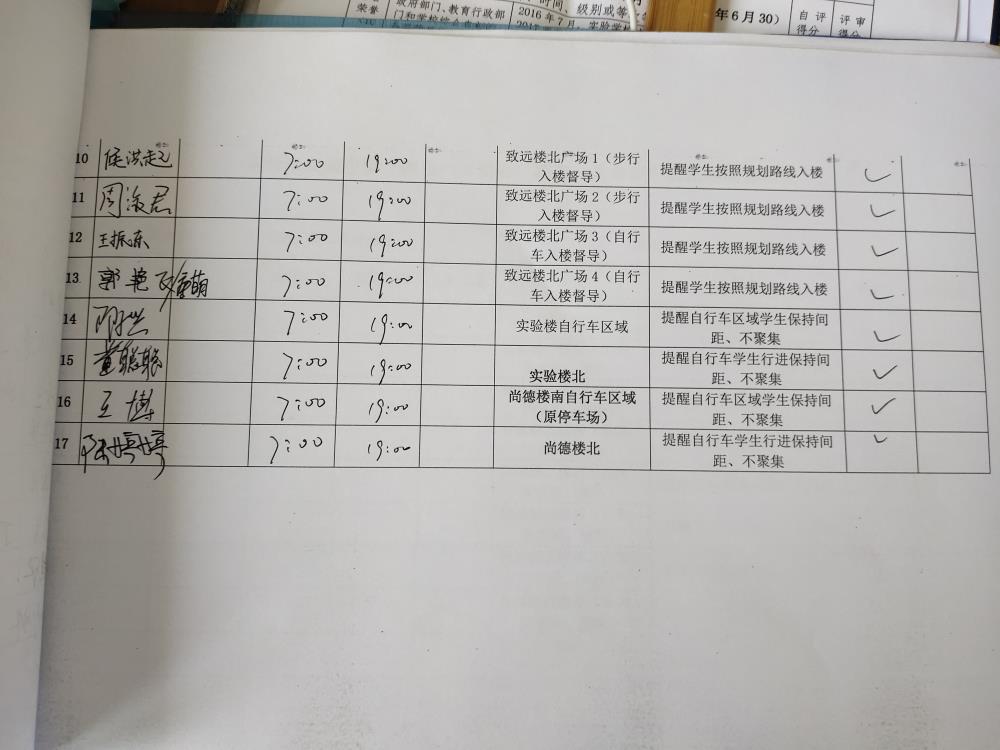 荣誉 政府部门、教育行政部 时间、级别或等 年6月30） 自评 评审
2016年7月，实验学校 得分 得分
10 侯洪起 7:00 19:00 致远楼北广场1（步行 提醒学生按照规划路线入楼 ✓
入楼督导）
11 周海君 7:00 19:00 致远楼北广场2（步行 提醒学生按照规划路线入楼 ✓
入楼督导）
12 王振东 7:00 19:00 致远楼北广场3（自行 提醒学生按照规划路线入楼 ✓
车入楼督导）
13 郭艳 萌 7:00 19:00 致远楼北广场4（自行 提醒学生按照规划路线入楼 ✓
车入楼督导）
14 7:00 19:00 实验楼自行车区域 提醒自行车区域学生保持间 ✓
距、不聚集
15 董聪聪 7:00 19:00 实验楼北 提醒自行车学生行进保持间 ✓
距、不聚集
16 王博 7:00 19:00 尚德楼南自行车区域 提醒自行车区域学生保持间 ✓
（原停车场） 距、不聚集
17 陈婷婷 7:00 19:00 尚德楼北 提醒自行车学生行进保持间 ✓
距、不聚集